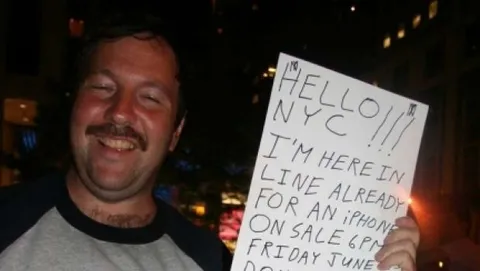 HELLO!!!
NYC
I'M HERE IN
LINE ALREADY
FOR AN iPHONE
ON SALE 6PM
FRIDAY JUNE